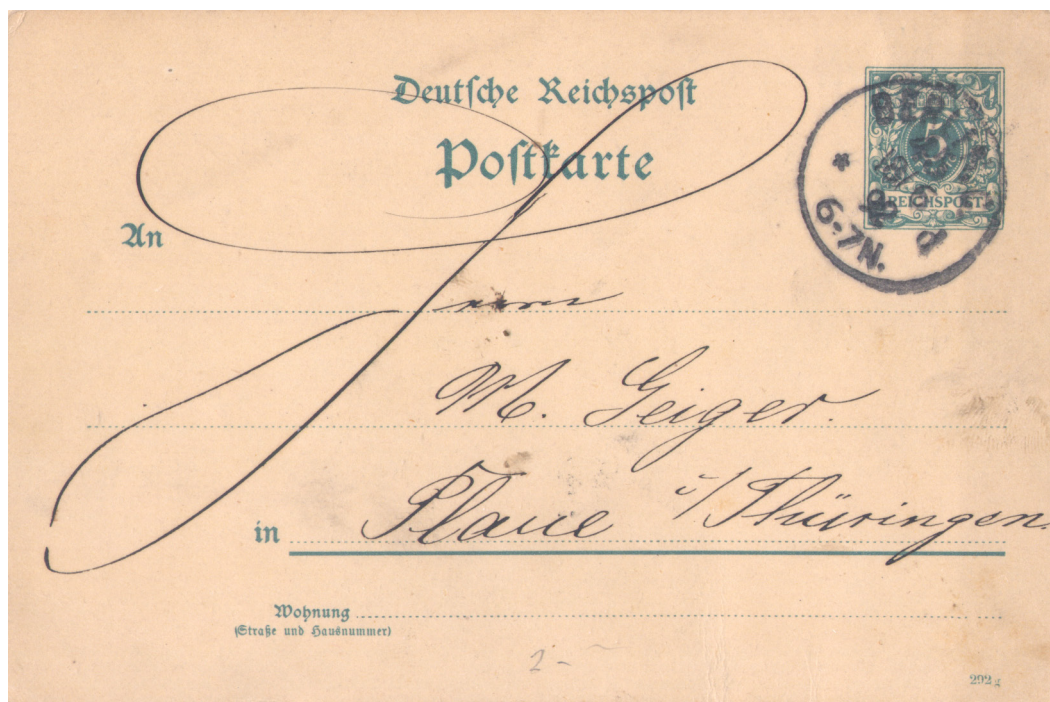 Deutsche Reichspost
Postkarte
5
REICHSPOST
6-7N.
An
Herrn
M. Geiger.
in Plaue i/Thüringen.
Wohnung
(Straße und Hausnummer)
2-
292 g